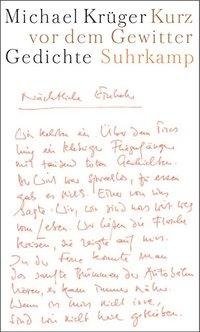 Michael Krüger Kurz
vor dem Gewitter
Gedichte Suhrkamp
Nächtliche Einkehr
Wir kehrten ein. Über dem Tresen
hing ein klebriger Fliegenfänger
mit tausend toten Geschichten.
Der Wirt war sprachlos, zu essen
gab es nichts. Einer von uns
sagte: Wir, wir sind weit weg
vom Leben. Wir ließen die Flasche
kreisen, sie zeigte auf mich.
In der Ferne konnte man
das sanfte Brummen der Autobahn
hören, es kam immer näher.
Wenn ich mich nicht irre,
sind wir nicht geblieben.